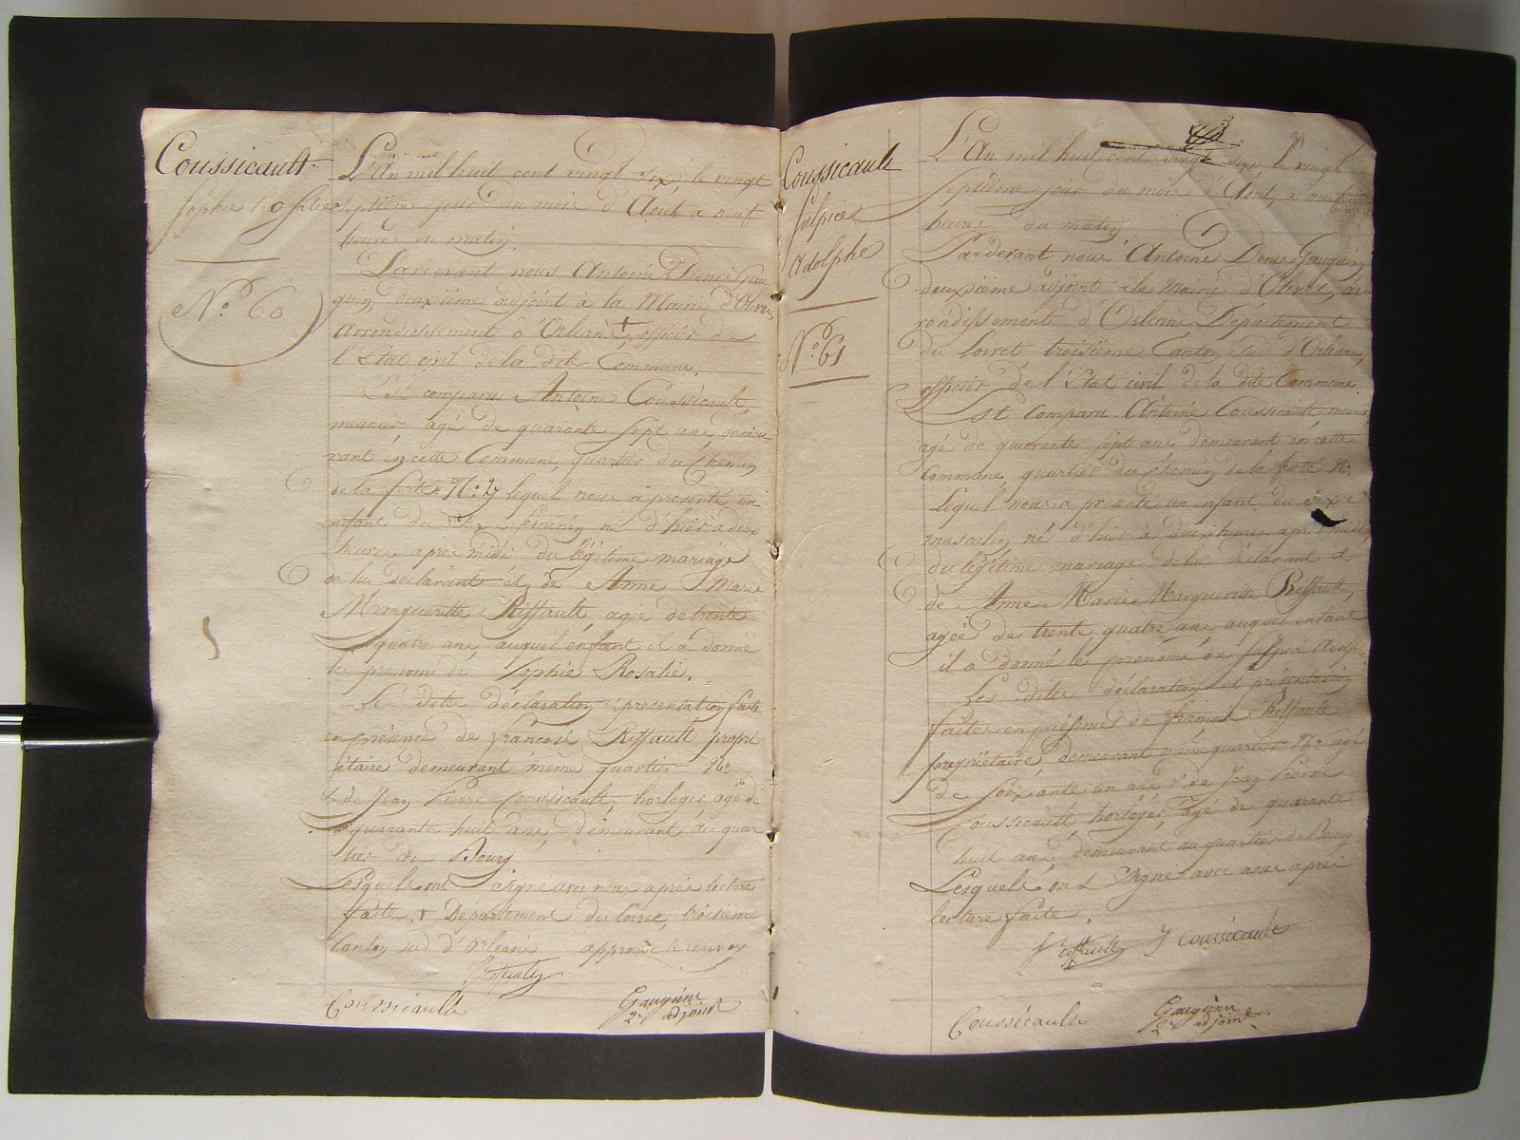 Coussicault
Sophie Rosalie
N.º 60
L'An mil huit cent vingt six, le vingt
septième jour du mois d'Aout a neuf
heures du matin.
Pardevant nous Antoine Denis Gau
guin, deuxième adjoint à la Mairie d'Olivet
Arrondissement d'Orléans + officier de
l'Etat civil de la dite Commune.
Est comparu Antoine Coussicault,
agé de quarante sept ans demeu
rant en cette Commune, quartier du Chemin
de la ferté Nº lequel nous a présenté un
enfant du sexe féminin né d'hier à deux
heures après midi du légitime mariage
de lui déclarant et de Anne Marie
Margueritte Riffault, agée de trente
quatre ans, auquel enfant il a donné
les prénoms de Sophie Rosalie.
La dite déclaration et présentation faite
en présence de francois Riffault propri
étaire demeurant même quartier Nº
& de Jean Pierre Coussicault, horloger, agé de
quarante huit ans, demeurant au quar
tier du Bourg
Lesquels ont signé avec nous après lecture
faite. + Département du Loiret, troisième
Canton sud d'Orléans approuvé le renvoy
Coussicault
Gauguin
2e adjoint
Coussicault
Sulpice
Adolphe
N.º 61
L'An mil huit cent vingt six, le vingt
septième jour du mois d'Aout, a neuf
heures du matin
Pardevant nous Antoine Denis Gauguin
deuxième adjoint à la Mairie d'Olivet, ar
rondissement d'Orléans Département
du Loiret troisième Canton sud d'Orléans,
officier de l'Etat civil de la dite Commune.
Est comparu Antoine Coussicault,
agé de quarante sept ans demeurant en cette
Commune, quartier du chemin de la ferté Nº
Lequel nous a présenté un enfant du sexe
masculin né d'hier à deux heures après midi
du légitime mariage de lui déclarant et
de Anne Marie Marguerite Riffault,
agée de trente quatre ans auquel enfant
il a donné les prénoms de Sulpice Adolphe
Les dites déclaration et présentation
faites en présence de francois Riffault
propriétaire demeurant même quartier Nº agé
de soixante un ans & de Jean Pierre
Coussicault horloger, agé de quarante
huit ans, demeurant au quartier du Bourg
Lesquels ont signé avec nous après
lecture faite.
Riffault J Coussicault
Coussicault
Gauguin
2e adjoint